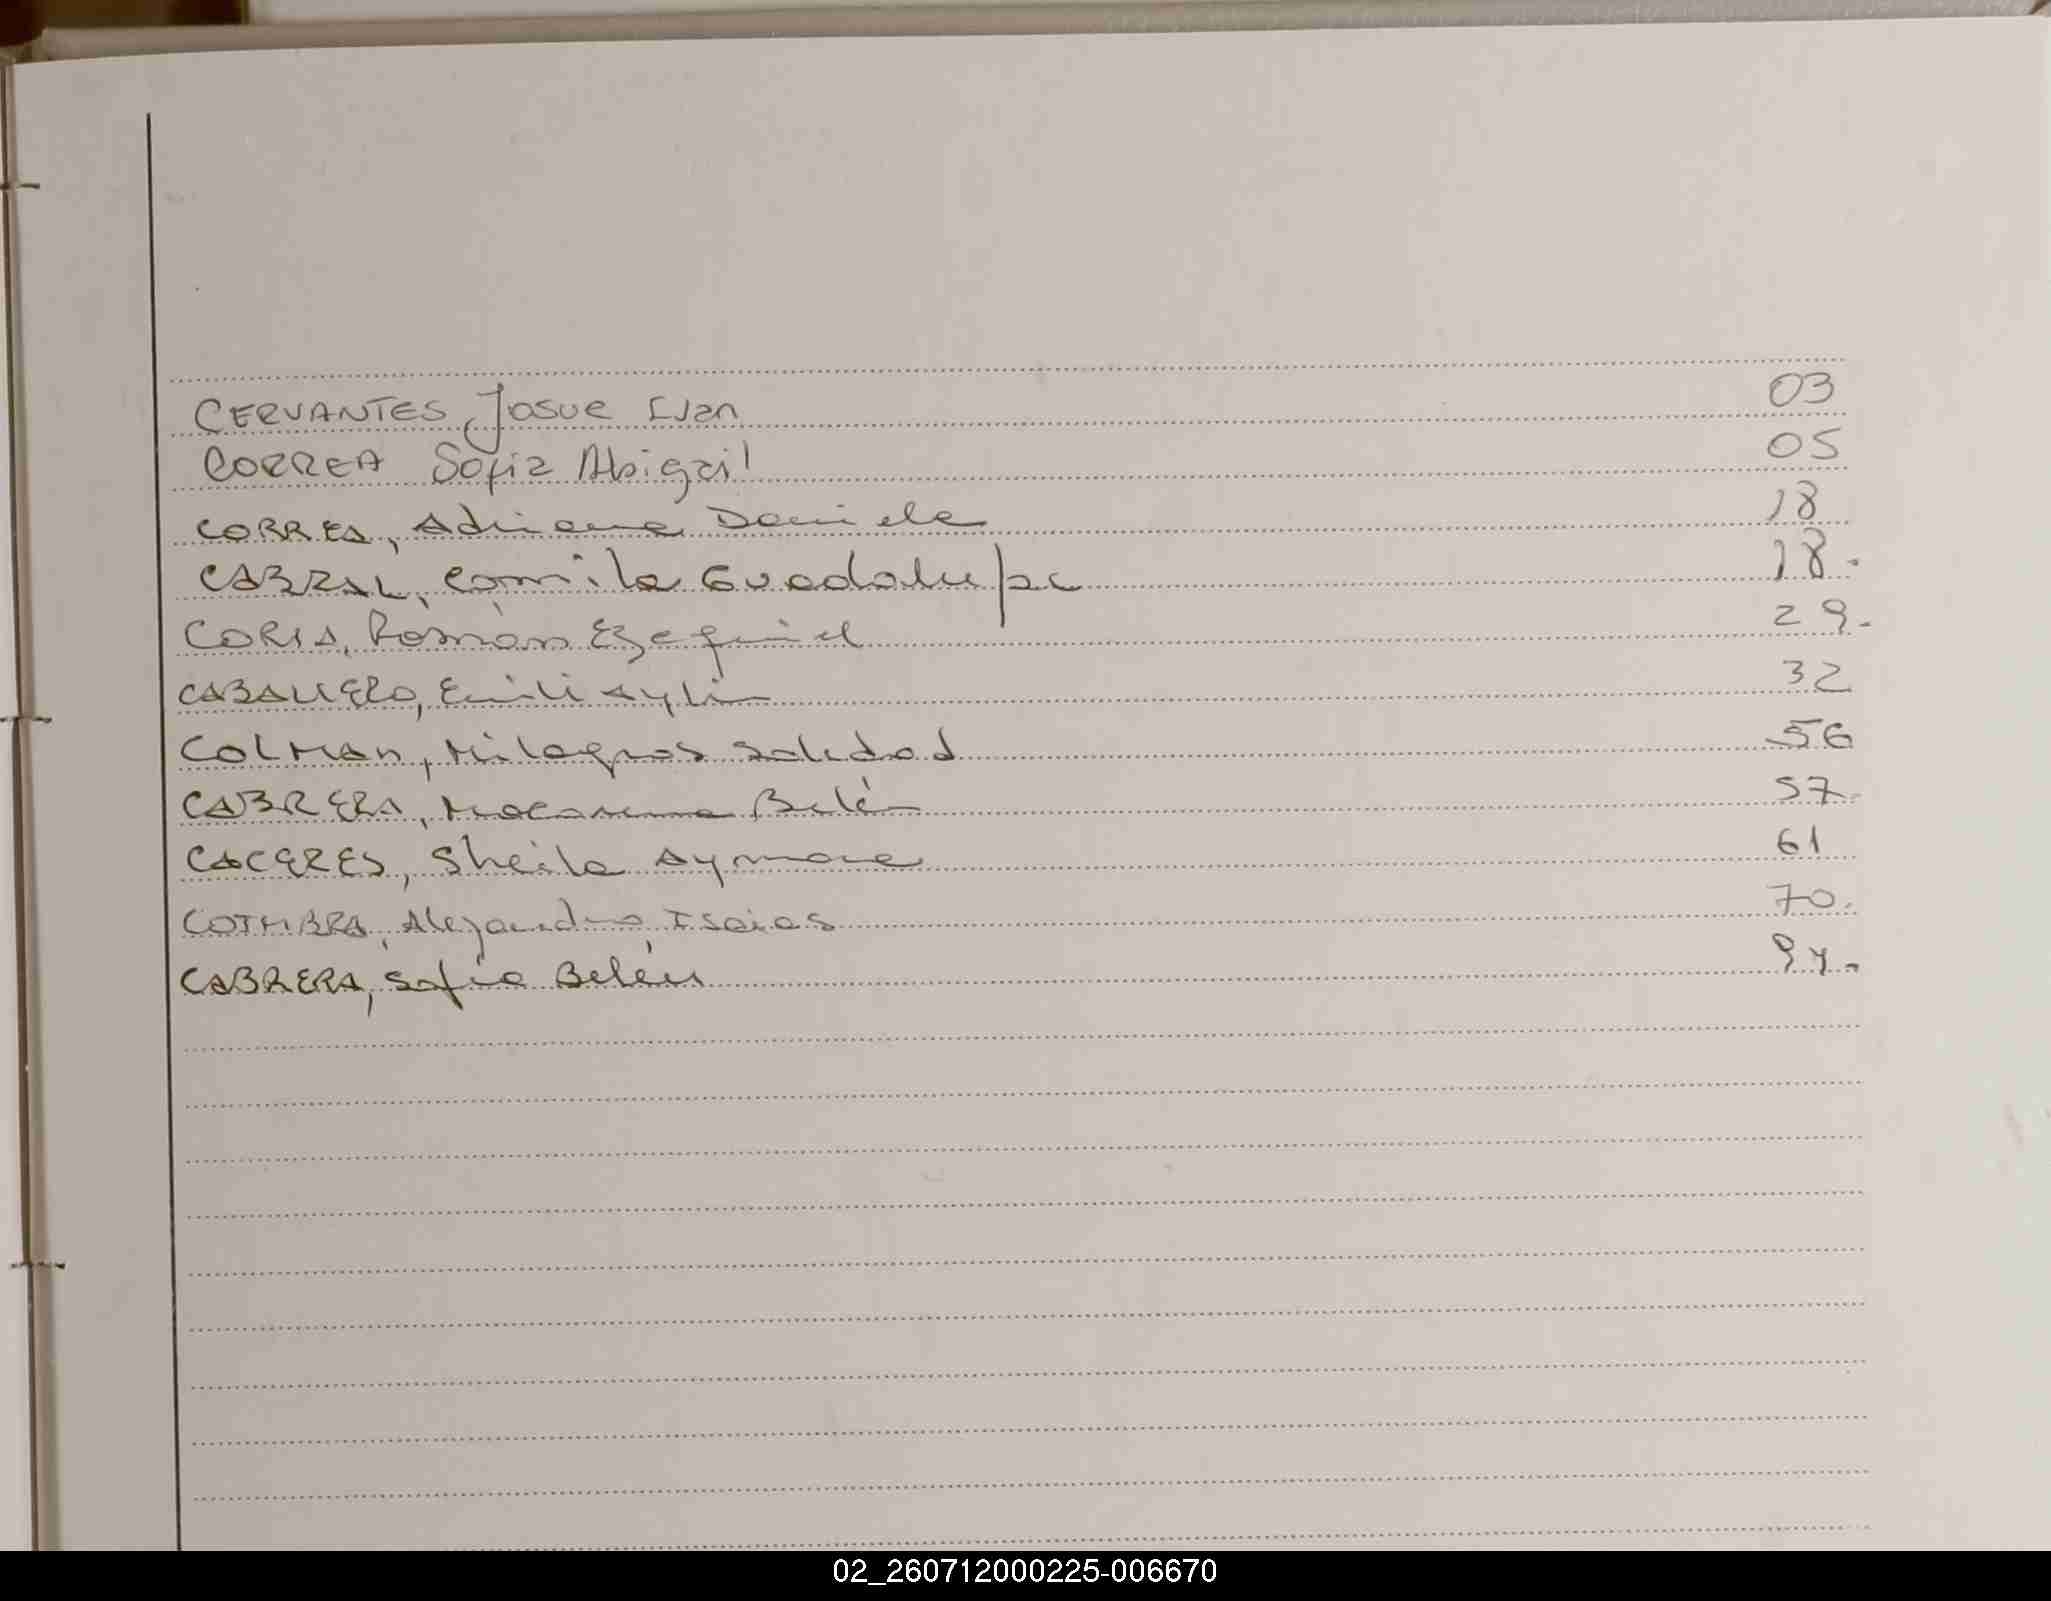 CERVANTES Josue Ivan 03
CORREA Sofia Abigail 05
CORREA, Adriana Daniela 18
CABRAL, Camila Guadalupe 18.
CORIA, Román Ezequiel 29.
CABALLERO, Emili Aylin 32
COLMAN, Milagros Soledad 56
CABRERA, Macarena Belén 57.
CACERES, Sheila Aymara 61
COIMBRA, Alejandro Isaias 70.
CABRERA, Sofía Belén 94.
02_260712000225-006670